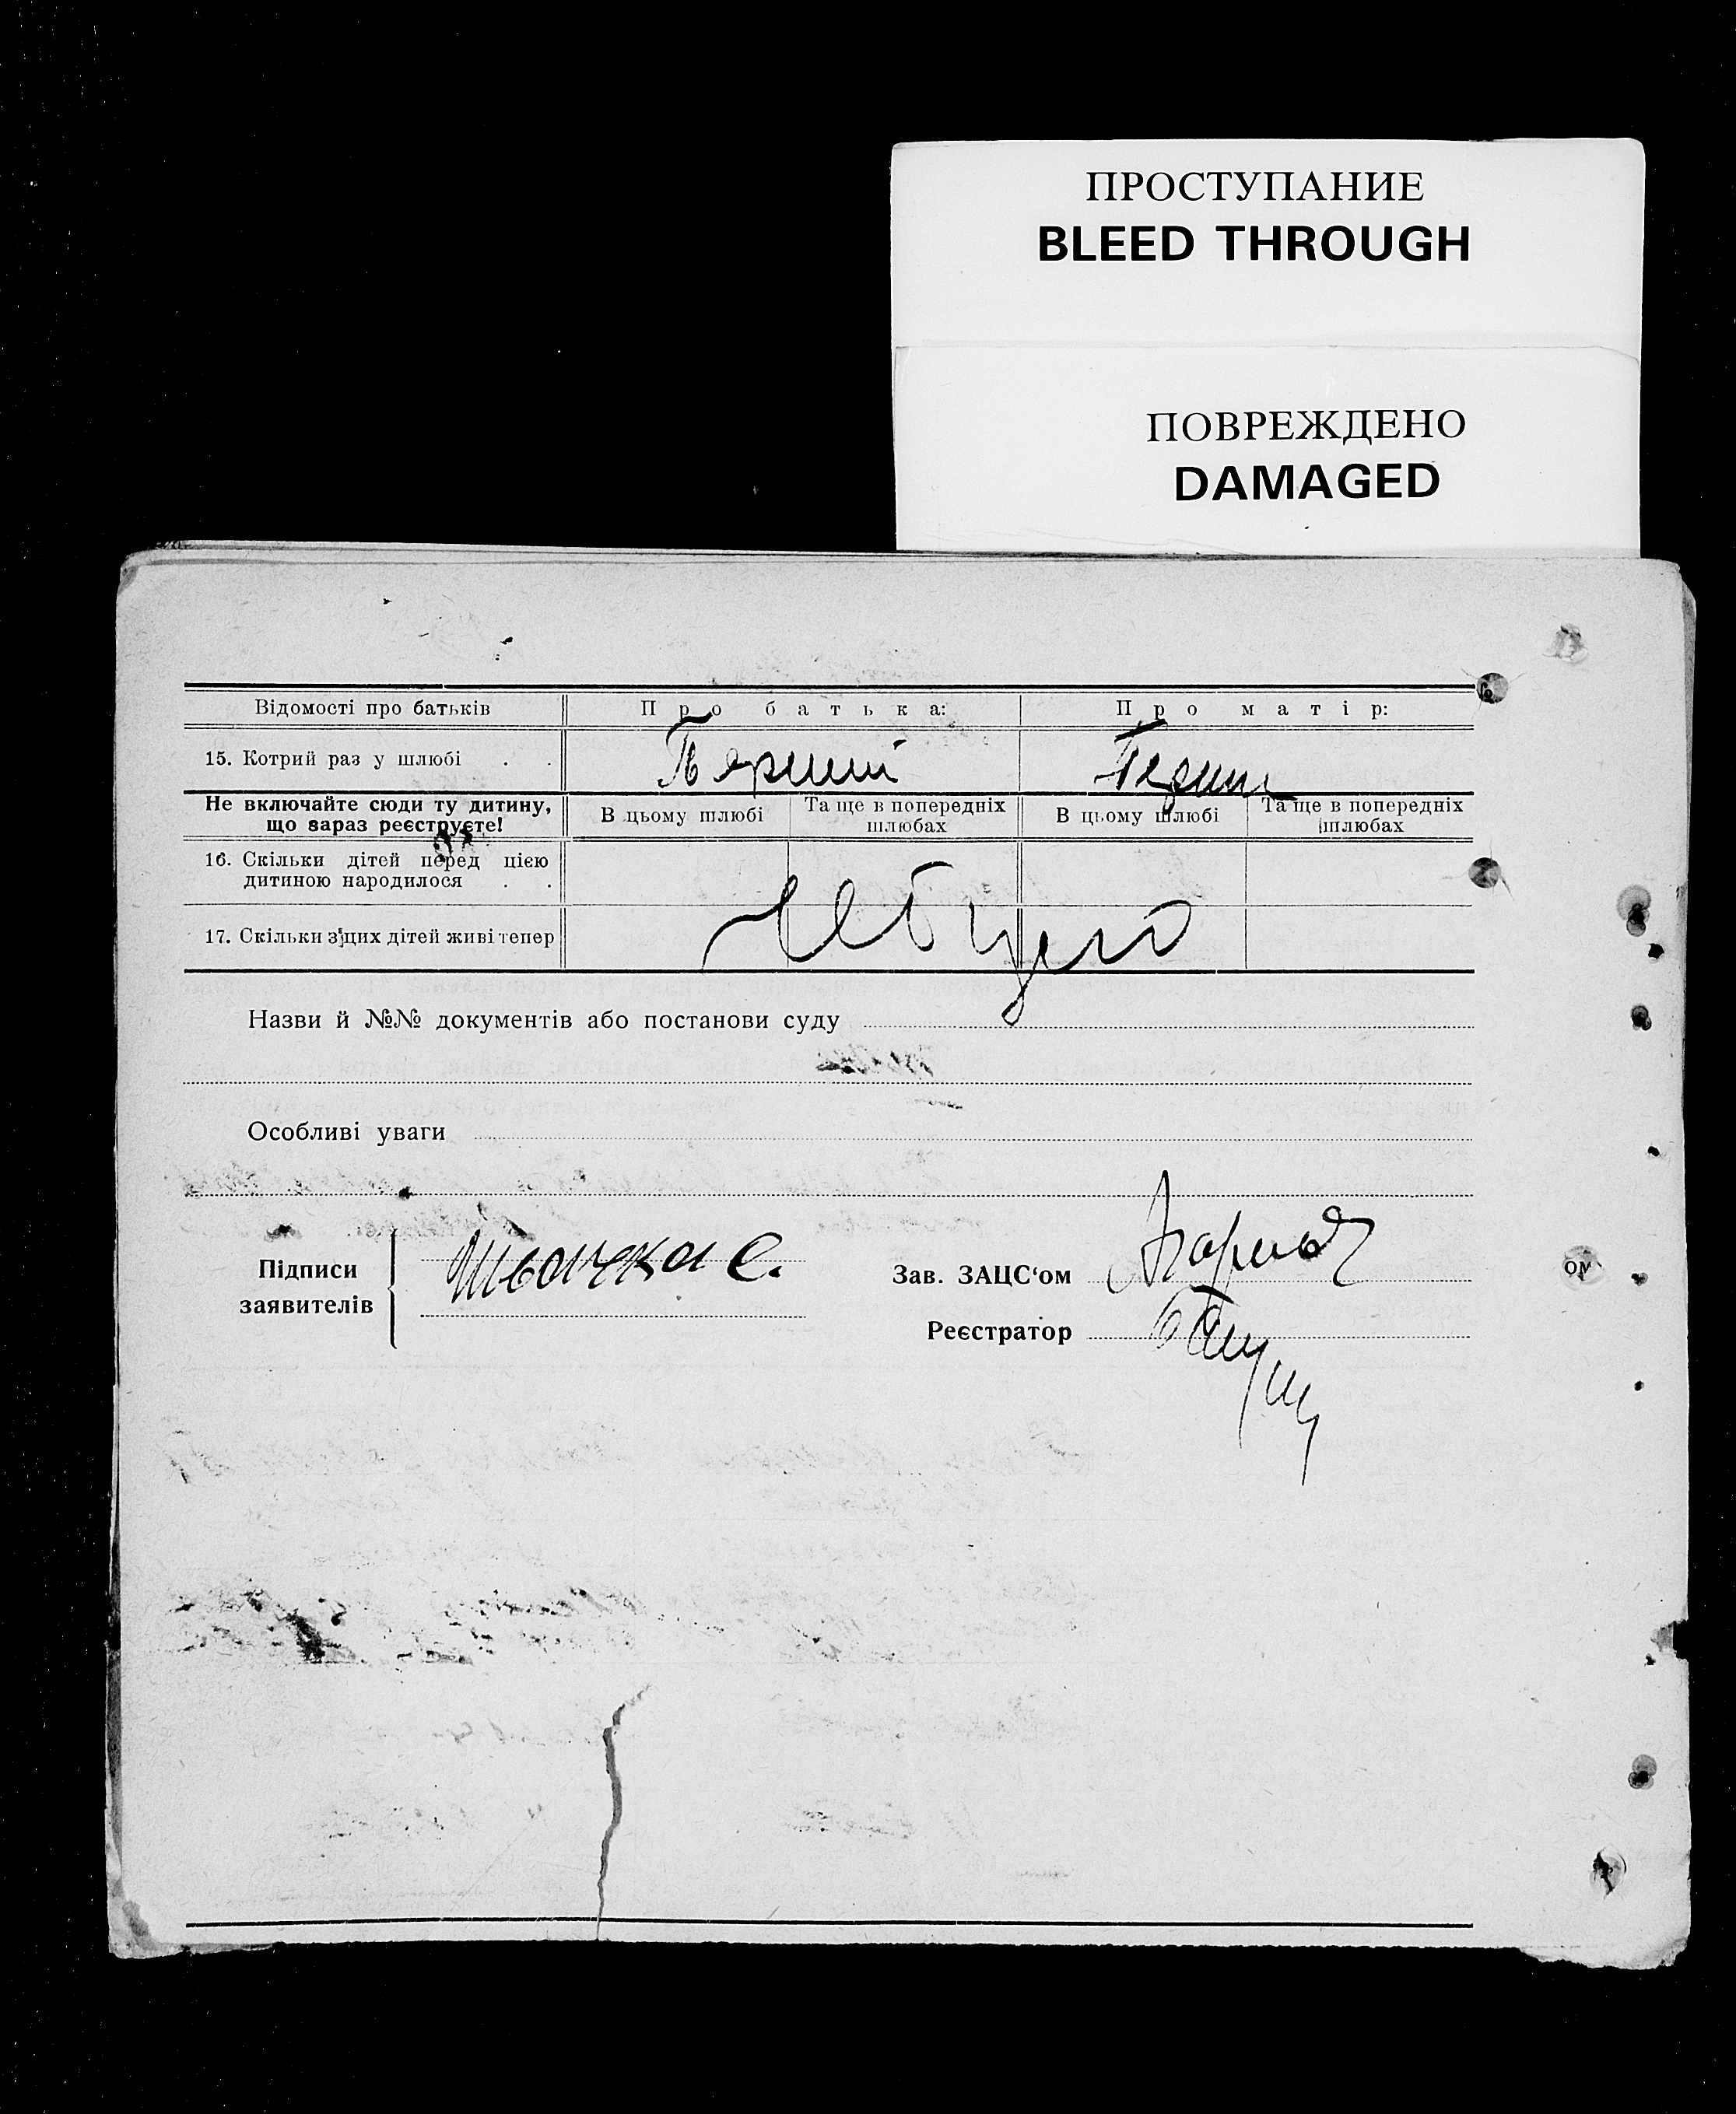 ПРОСТУПАНИЕ
BLEED THROUGH
ПОВРЕЖДЕНО
DAMAGED
Відомості про батьків Про батька: Про матір:
15. Котрий раз у шлюбі . . Перший
Не включайте сюди ту дитину, що зараз реєструєте! В цьому шлюбі Та ще в попередніх шлюбах В цьому шлюбі Та ще в попередніх шлюбах
16. Скільки дітей перед цією
дитиною народилося . .
17. Скільки з цих дітей живі тепер
Назви й №№ документів або постанови суду
Особливі уваги
Підписи
заявителів
Зав. ЗАЦС‘ом
Реєстратор
ом